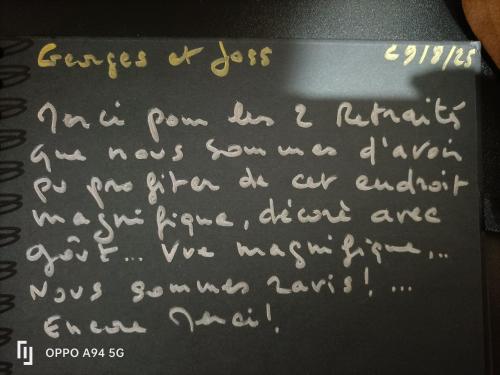 Georges et Joss
Merci pour les 2 Retraités
que nous sommes d'avoir
pu profiter de cet endroit
magnifique, décoré avec
goût... Vue magnifique...
Nous sommes ravis! ...
Encore Merci!
OPPO A94 5G